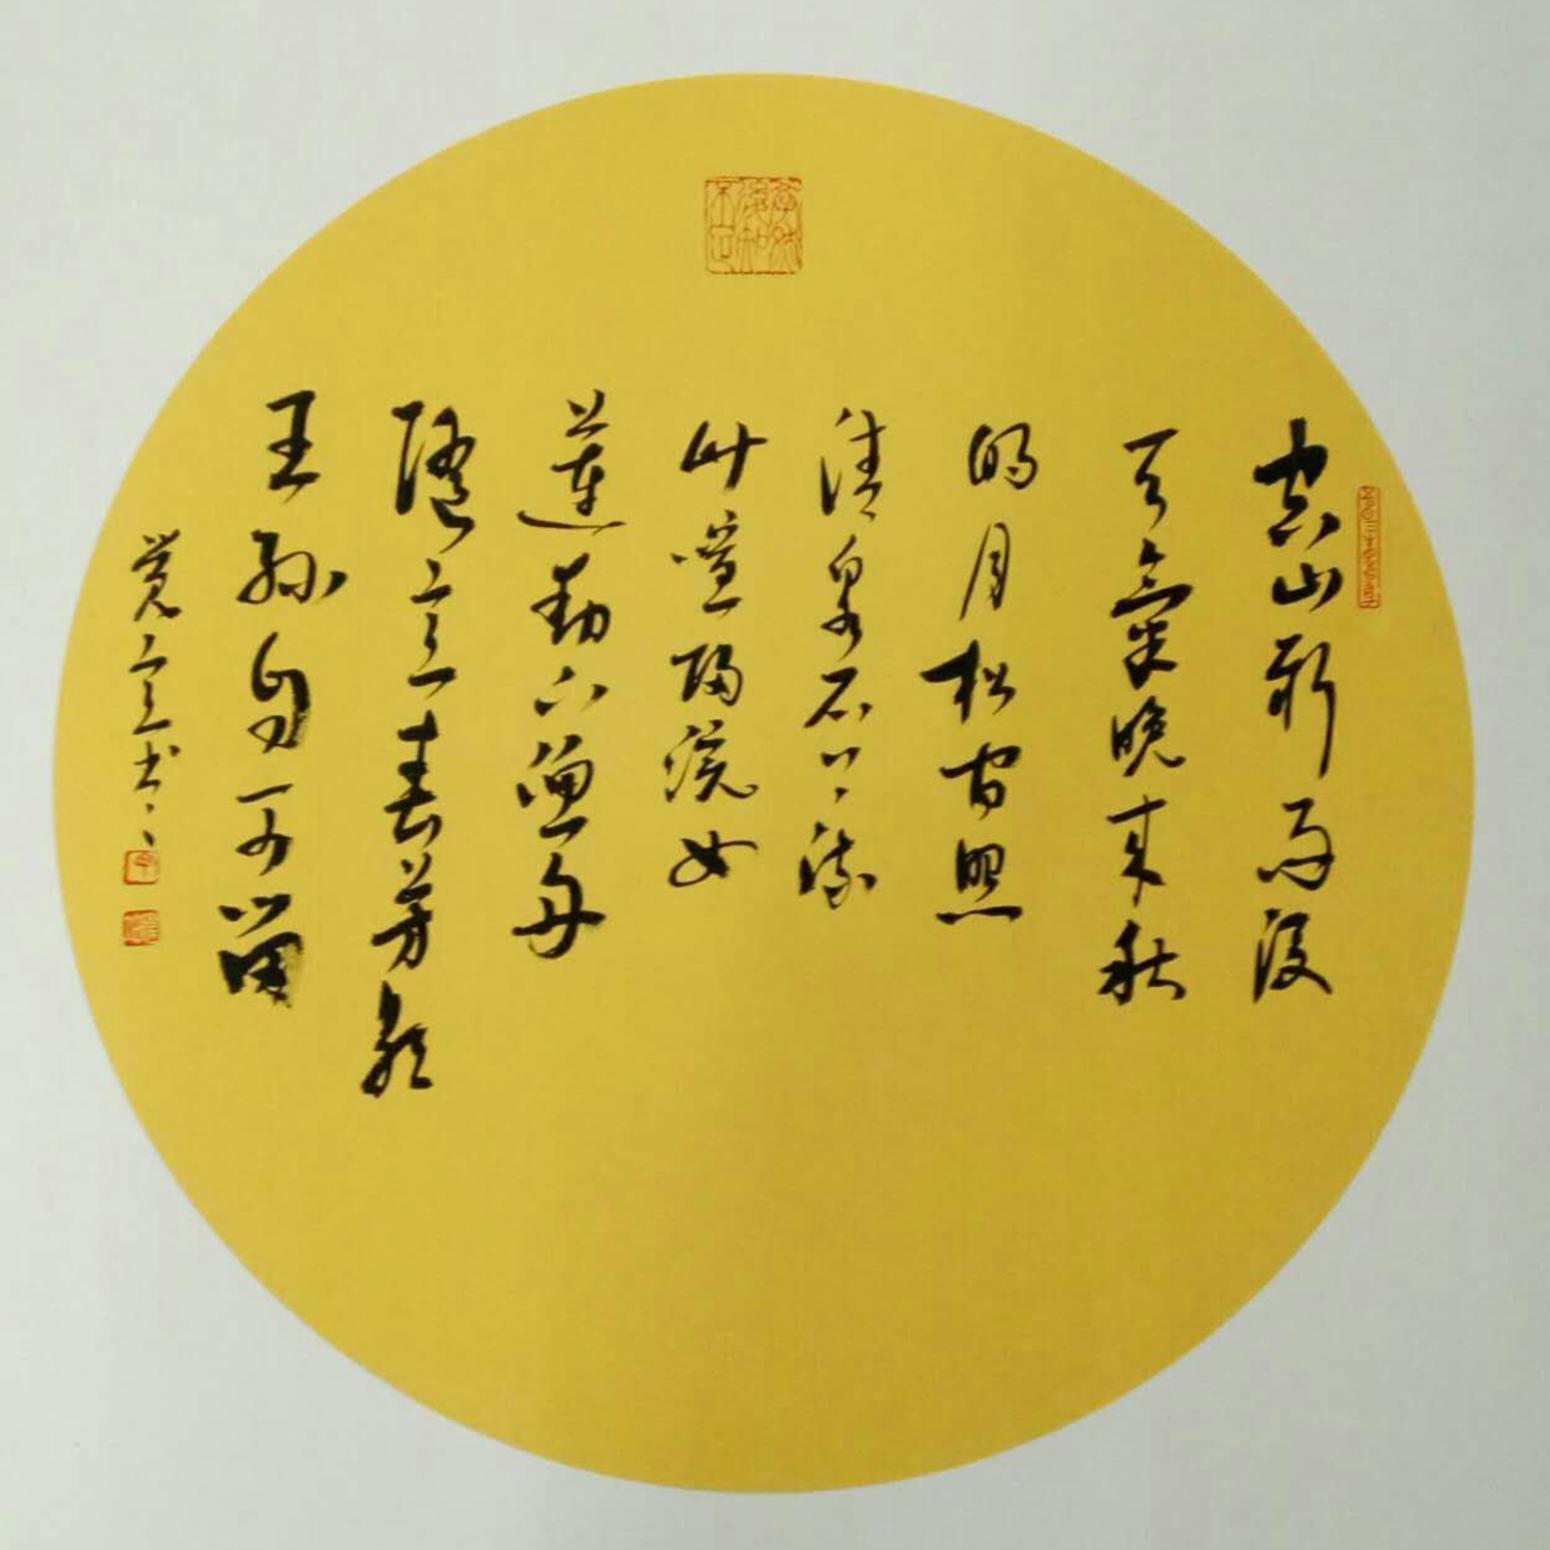 空山新雨后
天气晚来秋
明月松间照
清泉石上流
竹喧归浣女
莲动下渔舟
随意春芳歇
王孙自可留
觉之书